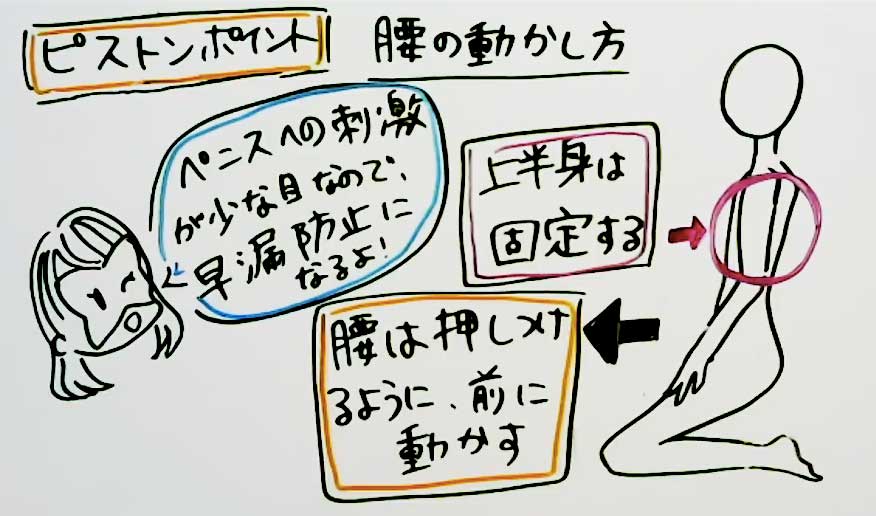 ピストンポイント 腰の動かし方
ペニスへの刺激
が少な目なので、
早漏防止に
なるよ!
上半身は
固定する
腰は押しつけ
るように、前に
動かす